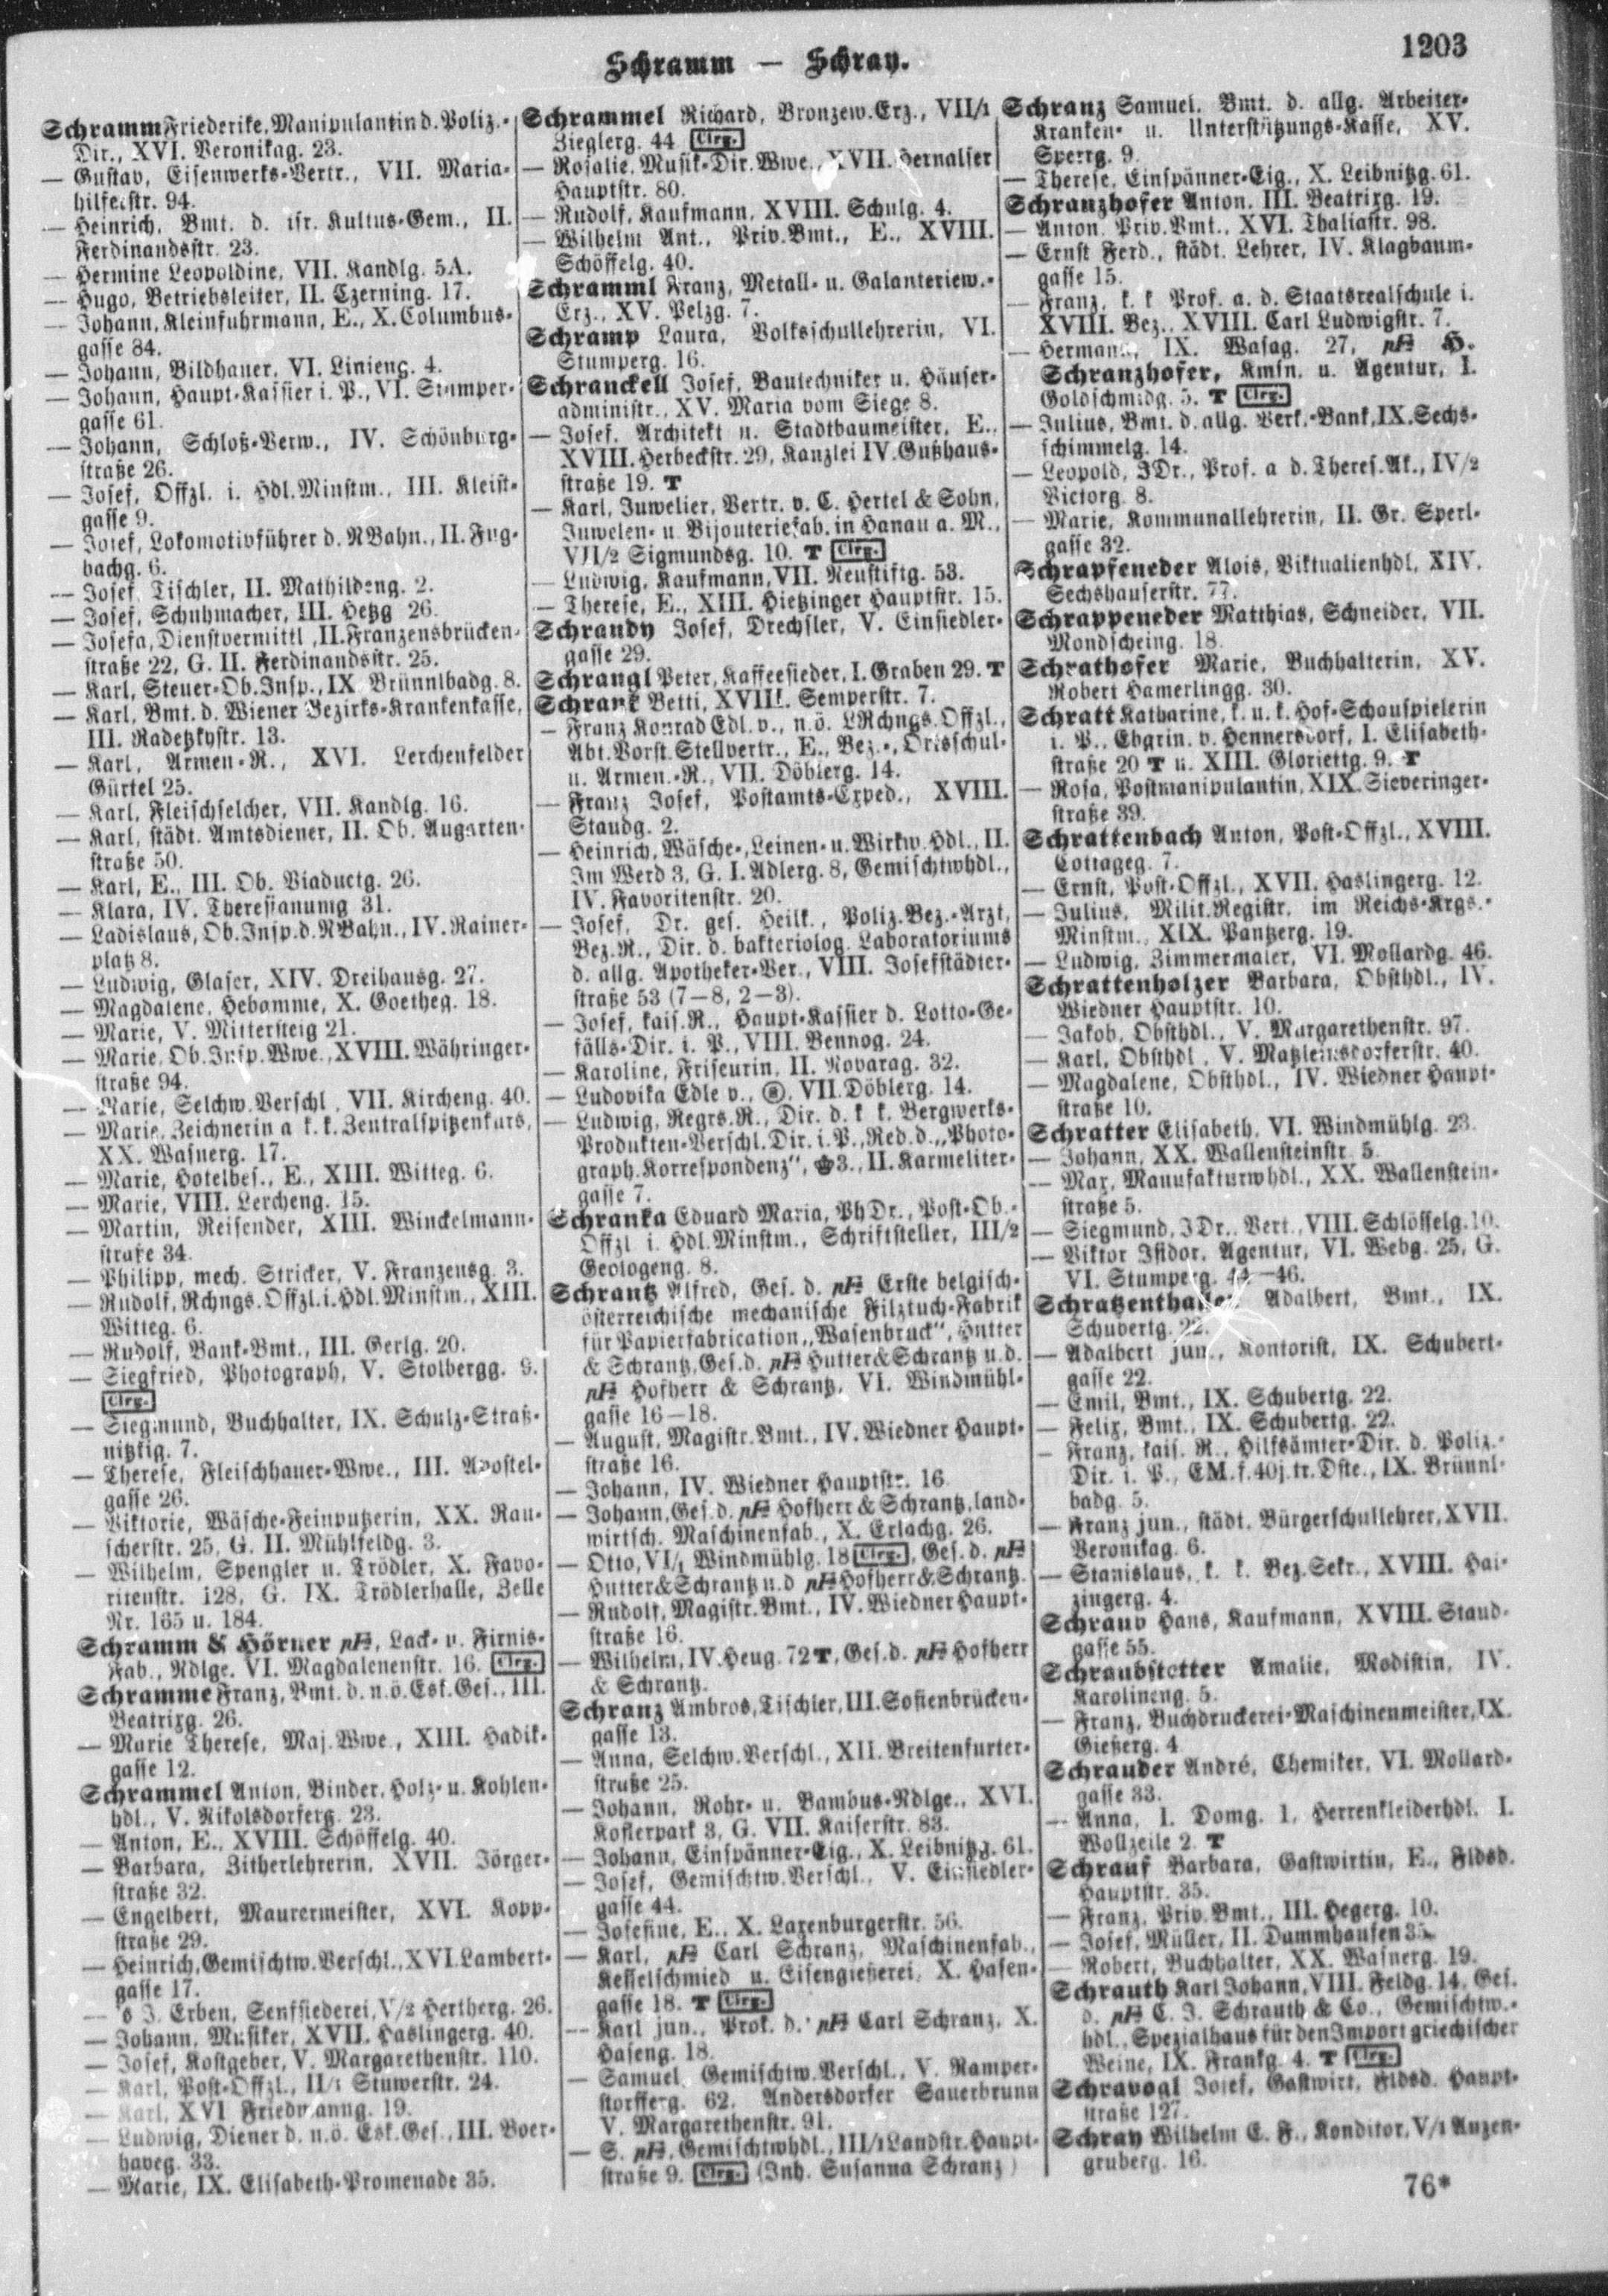 Schramm — Schray.
1203
Schramm Friederike, Manipulantin d. Poliz.-
Dir., XVI. Veronikag. 23.
— Gustav, Eisenwerks-Vertr., VII. Maria-
hilferstr. 94.
— Heinrich, Bmt. d. isr. Kultus-Gem., II.
Ferdinandsstr. 23.
— Hermine Leopoldine, VII. Kandlg. 5A.
— Hugo, Betriebsleiter, II. Czerning. 17.
— Johann, Kleinfuhrmann, E., X. Columbus-
gasse 84.
— Johann, Bildhauer, VI. Linieng. 4.
— Johann, Haupt-Kassier i. P., VI. Stumper-
gasse 61.
— Johann, Schloß-Verw., IV. Schönburg-
straße 26.
— Josef, Offzl. i. Hdl.Minstm., III. Kleist-
gasse 9.
— Josef, Lokomotivführer d. NBahn., II. Fug-
bachg. 6.
— Josef, Tischler, II. Mathildeng. 2.
— Josef, Schuhmacher, III. Hetzg 26.
— Josefa, Dienstvermittl., II. Franzensbrücken-
straße 22, G. II. Ferdinandsstr. 25.
— Karl, Steuer-Ob.Insp., IX. Brünnlbadg. 8.
— Karl, Bmt. d. Wiener Bezirks-Krankenkasse,
III. Radetzkystr. 13.
— Karl, Armen-R., XVI. Lerchenfelder
Gürtel 25.
— Karl, Fleischselcher, VII. Kandlg. 16.
— Karl, städt. Amtsdiener, II. Ob. Augarten-
straße 50.
— Karl, E., III. Ob. Viaductg. 26.
— Klara, IV. Theresianumg 31.
— Ladislaus, Ob.Insp.d.NBahn., IV. Rainer-
platz 8.
— Ludwig, Glaser, XIV. Dreihausg. 27.
— Magdalene, Hebamme, X. Goetheg. 18.
— Marie, V. Mittersteig 21.
— Marie, Ob.Insp.Wwe., XVIII. Währinger-
straße 94.
— Marie, Selchw.Verschl., VII. Kircheng. 40.
— Marie, Zeichnerin a k.k. Zentralspitzenkurs,
XX. Wasnerg. 17.
— Marie, Hotelbes., E., XIII. Witteg. 6.
— Marie, VIII. Lercheng. 15.
— Martin, Reisender, XIII. Winckelmann-
straße 34.
— Philipp, mech. Stricker, V. Franzensg. 3.
— Rudolf, Rchngs.Offzl.i.Hdl.Minstm., XIII.
Witteg. 6.
— Rudolf, Bank-Bmt., III. Gerlg. 20.
— Siegfried, Photograph, V. Stolbergg. 9.
Clrg.
— Siegmund, Buchhalter, IX. Schulz-Straß-
nitzkig. 7.
— Therese, Fleischhauer-Wwe., III. Apostel-
gasse 26.
— Viktorie, Wäsche-Feinputzerin, XX. Rau-
scherstr. 25, G. II. Mühlfeldg. 3.
— Wilhelm, Spengler u. Trödler, X. Favo-
ritenstr. 128, G. IX. Trödlerhalle, Zelle
Nr. 165 u. 184.
Schramm & Hörner pF, Lack- u. Firnis-
Fab., Ndlge. VI. Magdalenenstr. 16. Clrg.
Schramme Franz, Bmt. d. n.ö. Esk.Ges., III.
Beatrixg. 26.
— Marie Therese, Maj.Wwe., XIII. Hadik-
gasse 12.
Schrammel Anton, Binder, Holz- u. Kohlen-
hdl., V. Nikolsdorferg. 23.
— Anton, E., XVIII. Schöffelg. 40.
— Barbara, Zitherlehrerin, XVII. Jörger-
straße 32.
— Engelbert, Maurermeister, XVI. Kopp-
straße 29.
— Heinrich, Gemischtw.Verschl., XVI. Lambert-
gasse 17.
— 's J. Erben, Senfsiederei, V/2 Hertherg. 26.
— Johann, Musiker, XVII. Haslingerg. 40.
— Josef, Kostgeber, V. Margarethenstr. 110.
— Karl, Post-Offzl., II/1 Stuwerstr. 24.
— Karl, XVI Friedmanng. 19.
— Ludwig, Diener d. n.ö. Esk.Ges., III. Boer-
haveg. 33.
— Marie, IX. Elisabeth-Promenade 35.
Schrammel Richard, Bronzew.Erz., VII/1
Zieglerg. 44 Clrg.
— Rosalie, Musik-Dir.Wwe., XVII. Hernalser
Hauptstr. 80.
— Rudolf, Kaufmann, XVIII. Schulg. 4.
— Wilhelm Ant., Priv.Bmt., E., XVIII.
Schöffelg. 40.
Schramml Franz, Metall- u. Galanteriew.-
Erz., XV. Pelzg. 7.
Schramp Laura, Volksschullehrerin, VI.
Stumperg. 16.
Schranckell Josef, Bautechniker u. Häuser-
administr., XV. Maria vom Siege 8.
— Josef, Architekt u. Stadtbaumeister, E.,
XVIII. Herbeckstr. 29, Kanzlei IV. Gußhaus-
straße 19. T
— Karl, Juwelier, Vertr. v. C. Hertel & Sohn,
Juwelen- u. Bijouteriefab. in Hanau a. M.,
VII/2 Sigmundsg. 10. T Clrg.
— Ludwig, Kaufmann, VII. Neustiftg. 53.
— Therese, E., XIII. Hietzinger Hauptstr. 15.
Schrandy Josef, Drechsler, V. Einsiedler-
gasse 29.
Schrangl Peter, Kaffeesieder, I. Graben 29. T
Schrank Betti, XVIII. Semperstr. 7.
— Franz Konrad Edl. v., n.ö. LRchngs.Offzl.,
Abt.Vorst.Stellvertr., E., Bez.-, Ortsschul-
u. Armen.-R., VII. Döblerg. 14.
— Franz Josef, Postamts-Exped., XVIII.
Staudg. 2.
— Heinrich, Wäsche-, Leinen- u. Wirkw.Hdl., II.
Im Werd 3, G. I. Adlerg. 8, Gemischtwhdl.,
IV. Favoritenstr. 20.
— Josef, Dr. ges. Heilk., Poliz.Bez.-Arzt,
Bez.R., Dir. d. bakteriolog. Laboratoriums
d. allg. Apotheker-Ver., VIII. Josefstädter-
straße 53 (7—8, 2—3).
— Josef, kais.R., Haupt-Kassier d. Lotto-Ge-
fälls-Dir. i. P., VIII. Bennog. 24.
— Karoline, Friseurin, II. Novarag. 32.
— Ludovika Edle v., VII. Döblerg. 14.
— Ludwig, Regrs.R., Dir. d. k k. Bergwerks-
Produkten-Verschl.Dir. i. P., Red. d. „Photo-
graph. Korrespondenz", 3., II. Karmeliter-
gasse 7.
Schranka Eduard Maria, PhDr., Post-Ob.-
Offzl i. Hdl.Minstm., Schriftsteller, III/2
Geologeng. 8.
Schrantz Alfred, Ges. d. pF Erste belgisch-
österreichische mechanische Filztuch-Fabrik
für Papierfabrication „Wasenbruck", Hutter
& Schrantz, Ges. d. pF Hutter & Schrantz u. d.
pF Hofherr & Schrantz, VI. Windmühl-
gasse 16—18.
— August, Magistr.Bmt., IV. Wiedner Haupt-
straße 16.
— Johann, IV. Wiedner Hauptstr. 16
— Johann, Ges. d. pF Hofherr & Schrantz, land-
wirtsch. Maschinenfab., X. Erlachg. 26.
— Otto, VI/1 Windmühlg. 18 Clrg., Ges. d. pF
Hutter & Schrantz u. d pF Hofherr & Schrantz.
— Rudolf, Magistr.Bmt., IV. Wiedner Haupt-
straße 16.
— Wilhelm, IV. Heug. 72 T, Ges. d. pF Hofherr
& Schrantz.
Schranz Ambros, Tischler, III. Sofienbrücken-
gasse 13.
— Anna, Selchw.Verschl., XII. Breitenfurter-
straße 25.
— Johann, Rohr- u. Bambus-Ndlge., XVI.
Koflerpark 3, G. VII. Kaiserstr. 83.
— Johann, Einspänner-Eig., X. Leibnitzg. 61.
— Josef, Gemischtw.Verschl., V. Einsiedler-
gasse 44.
— Josefine, E., X. Laxenburgerstr. 56.
— Karl, pF Carl Schranz, Maschinenfab.,
Kesselschmied u. Eisengießerei, X. Hasen-
gasse 18. T Clrg.
— Karl jun., Prok. d. pF Carl Schranz, X.
Haseng. 18.
— Samuel Gemischtw.Verschl., V. Ramper-
storfferg. 62. Andersdorfer Sauerbrunn
V. Margarethenstr. 91.
— S. pF, Gemischtwhdl., III/1 Landstr. Haupt-
straße 9. Clrg. (Inh. Susanna Schranz)
Schranz Samuel, Bmt. d. allg. Arbeiter-
Kranken- u. Unterstützungs-Kasse, XV.
Sperrg. 9.
— Therese, Einspänner-Eig., X. Leibnitzg. 61.
Schranzhofer Anton, III. Beatrixg. 19.
— Anton, Priv.Bmt., XVI. Thaliastr. 98.
— Ernst Ferd., städt. Lehrer, IV. Klagbaum-
gasse 15.
— Franz, k. k Prof. a. d. Staatsrealschule i.
XVIII. Bez., XVIII. Carl Ludwigstr. 7.
— Hermann, IX. Wasag. 27, pF H.
Schranzhofer, Kmfn. u. Agentur, I.
Goldschmidg. 5. T Clrg.
— Julius, Bmt. d. allg. Verk.-Bank, IX. Sechs-
schimmelg. 14.
— Leopold, JDr., Prof. a d. Theres.Ak., IV/2
Victorg. 8.
— Marie, Kommunallehrerin, II. Gr. Sperl-
gasse 32.
Schrapfeneder Alois, Viktualienhdl, XIV.
Sechshauserstr. 77.
Schrappeneder Matthias, Schneider, VII.
Mondscheing. 18.
Schrathofer Marie, Buchhalterin, XV.
Robert Hamerlingg. 30.
Schratt Katharine, k. u. k. Hof-Schauspielerin
i. P., Ebgrin. v. Hennersdorf, I. Elisabeth-
straße 20 T u. XIII. Gloriettg. 9. T
— Rosa, Postmanipulantin, XIX. Sieveringer-
straße 39.
Schrattenbach Anton, Post-Offzl., XVIII.
Cottageg. 7.
— Ernst, Post-Offzl., XVII. Haslingerg. 12.
— Julius, Milit.Registr. im Reichs-Krgs.-
Minstm., XIX. Pantzerg. 19.
— Ludwig, Zimmermaler, VI. Mollardg. 46.
Schrattenholzer Barbara, Obsthdl., IV.
Wiedner Hauptstr. 10.
— Jakob, Obsthdl., V. Margarethenstr. 97.
— Karl, Obsthdl., V. Matzleinsdorferstr. 40.
— Magdalene, Obsthdl., IV. Wiedner Haupt-
straße 10.
Schratter Elisabeth, VI. Windmühlg. 23.
— Johann, XX. Wallensteinstr. 5.
— Max, Manufakturwhdl., XX. Wallenstein-
straße 5.
— Siegmund, JDr., Vert., VIII. Schlösselg. 10.
— Viktor Isidor, Agentur, VI. Webg. 25, G.
VI. Stumperg. 44—46.
Schratzenthaller Adalbert, Bmt., IX.
Schubertg. 22.
— Adalbert jun., Kontorist, IX. Schubert-
gasse 22.
— Emil, Bmt., IX. Schubertg. 22.
— Felix, Bmt., IX. Schubertg. 22.
— Franz, kais. R., Hilfsämter-Dir. d. Poliz.-
Dir. i. P., EM.f.40j.tr.Dste., IX. Brünnl-
badg. 5.
— Franz jun., städt. Bürgerschullehrer, XVII.
Veronikag. 6.
— Stanislaus, k. k. Bez.Sekr., XVIII. Hai-
zingerg. 4.
Schraub Hans, Kaufmann, XVIII. Staud-
gasse 55.
Schraubstetter Amalie, Modistin, IV.
Karolineng. 5.
— Franz, Buchdruckerei-Maschinenmeister, IX.
Gießerg. 4
Schrauder André, Chemiker, VI. Mollard-
gasse 33.
— Anna, I. Domg. 1, Herrenkleiderhdl. I.
Wollzeile 2. T
Schrauf Barbara, Gastwirtin, E., Fldsd.
Hauptstr. 35.
— Franz, Priv.Bmt., III. Hegerg. 10.
— Josef, Müller, II. Dammhaufen 35.
— Robert, Buchhalter, XX. Wasnerg. 19.
Schrauth Karl Johann, VIII. Feldg. 14, Ges.
d. pF C. J. Schrauth & Co., Gemischtw.-
hdl., Spezialhaus für den Import griechischer
Weine, IX. Frankg. 4. T Clrg.
Schravogl Josef, Gastwirt, Fldsd. Haupt-
straße 127.
Schray Wilhelm E. F., Konditor, V/1 Anzen-
gruberg. 16.
76*